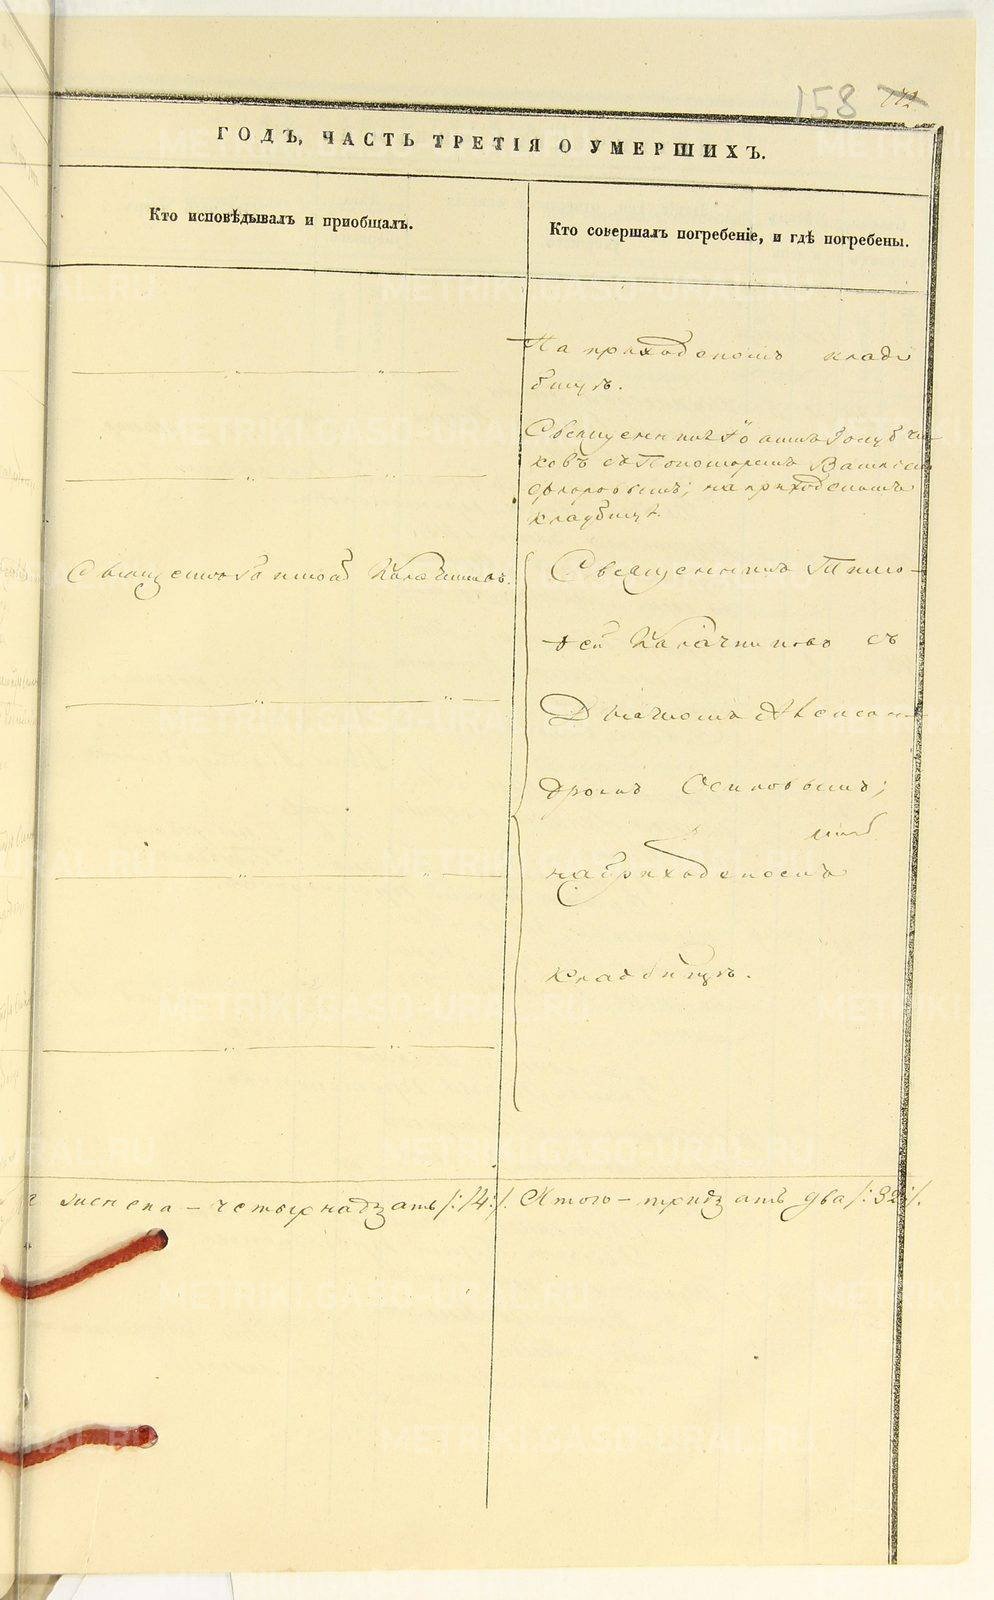 158
ГОДЪ, ЧАСТЬ ТРЕТІЯ О УМЕРШИХЪ.
Кто исповѣдывалъ и пріобщалъ.
Кто совершалъ погребеніе, и гдѣ погребены.
На приходскомъ клад
бищѣ.
Священникъ Голубчи
ковъ съ Пономаремъ
на приходскомъ
кладбищѣ.
Священникъ Тимоѳ Калачниковъ.
Священникъ Тимо-
ѳей Калачниковъ съ
Дьячкомъ Алексан-
дромъ Осиповымъ;
на приходскомъ
кладбищѣ.
женска – четырнадцать /:14:/. Итого – тридцать два /:32:/.
METRIKI.GASO-URAL.RU